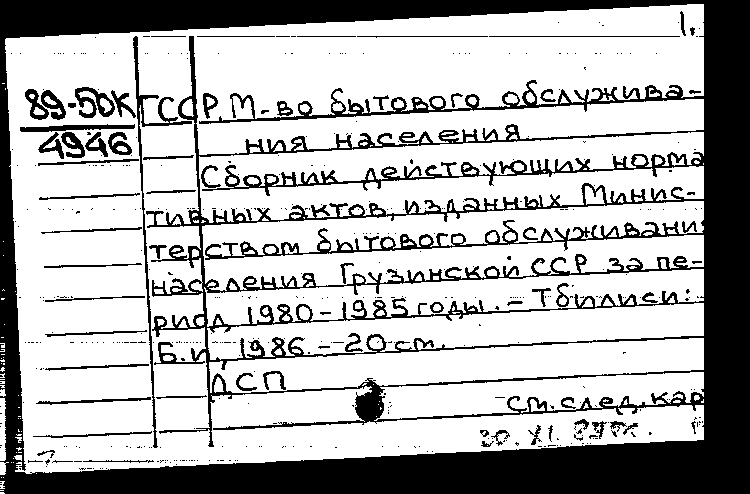 1.
89-50К ГССР. М-во бытового обслужива-
4946 ния населения
Сборник действующих норма
тивных актов, изданных Минис-
терством бытового обслуживани
населения Грузинской ССР за пе-
риод 1980-1985 годы. - Тбилиси:
Б.и., 1986. - 20 см.
ДСП
см. след. кар
30. XI.